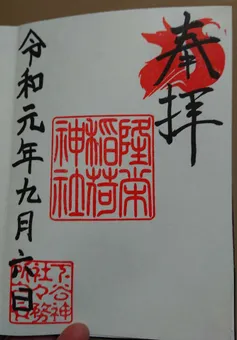 奉拝
隆栄
稲荷
神社
令和元年九月六日
下谷神
社々務
所